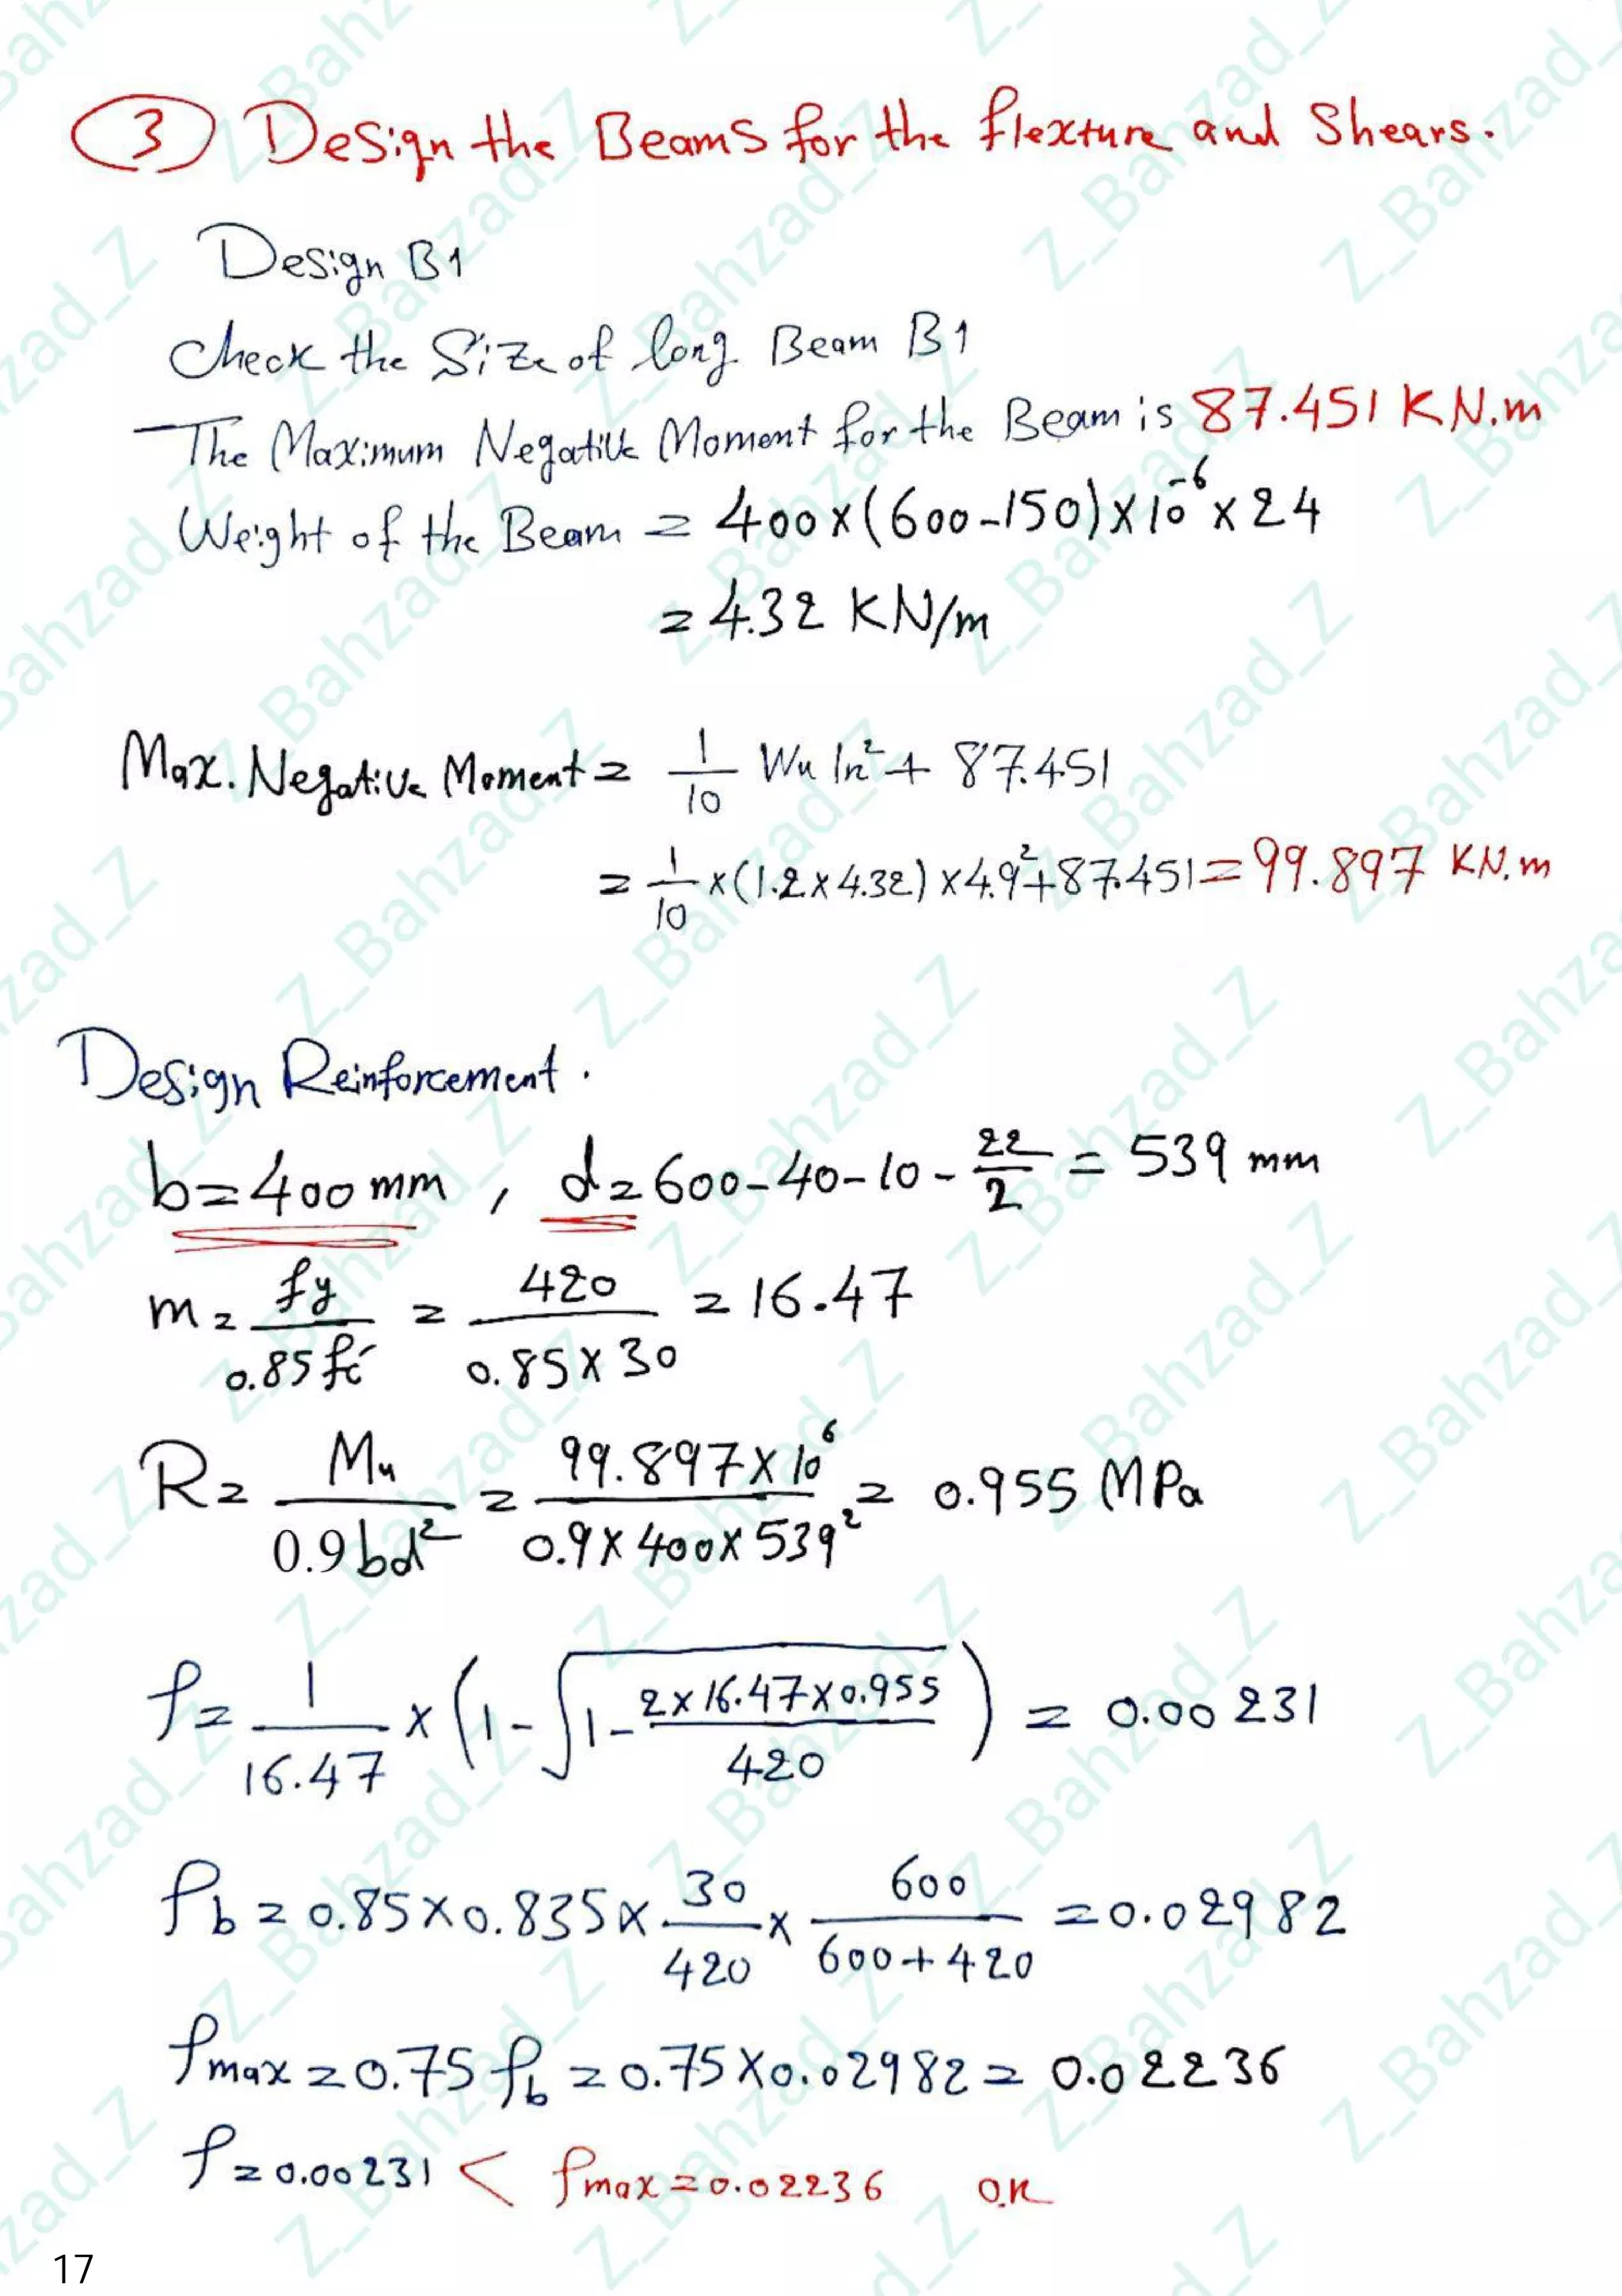 3 Design the Beams for the flexture and Shears.
Design B1
Check the Size of long Beam B1
The Maximum Negative Moment for the Beam is 87.451 KN.m
Weight of the Beam = 400x(600-150)x10⁻⁶x24
= 4.32 KN/m
Max. Negative Moment = 1/10 Wu ln² + 87.451
= 1/10 x(1.2x4.32)x4.9²+87.451=99.897 KN.m
Design Reinforcement.
b=400mm , d=600-40-10-22/2 = 539 mm
m= fy/0.85fc' = 420/0.85x30 = 16.47
R= Mu/0.9bd² = 99.897x10⁶/0.9x400x539² = 0.955 MPa
ρ= 1/16.47 x (1-√1-2x16.47x0.955/420) = 0.00231
ρb = 0.85x0.835x 30/420 x 600/600+420 =0.02982
ρmax=0.75ρb=0.75x0.02982= 0.02236
ρ=0.00231 < ρmax=0.02236 O.K
17
Z_Bahzad_Z